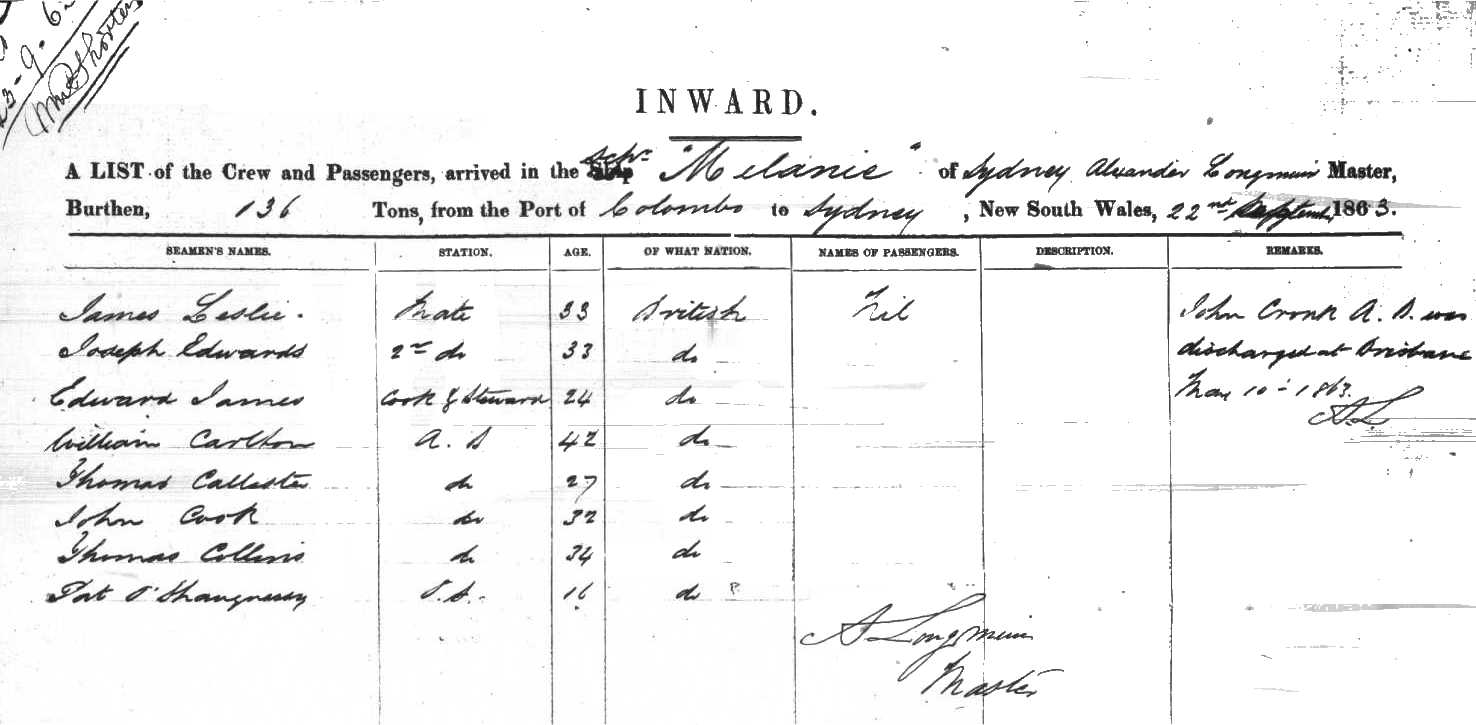 23-9-6
INWARD.
A LIST of the Crew and Passengers, arrived in the Schr "Melanie" of Sydney Alexander Longmuir Master,
Burthen, 136 Tons, from the Port of Colombo to Sydney, New South Wales, 22nd September 1863.
SEAMEN'S NAMES. STATION. AGE. OF WHAT NATION. NAMES OF PASSENGERS. DESCRIPTION. REMARKS.
James Leslie. Mate 33 British Nil John Cronk A.B. was
Joseph Edwards 2nd do 33 do discharged at Brisbane
Edward James Cook & Steward 24 do May 10 - 1863.
A.L
William Carlton A.B 42 do
Thomas Callester do 27 do
John Cook do 32 do
Thomas Collins do 34 do
Pat O'Shaugnessy 16 do
A Longmuir
Master